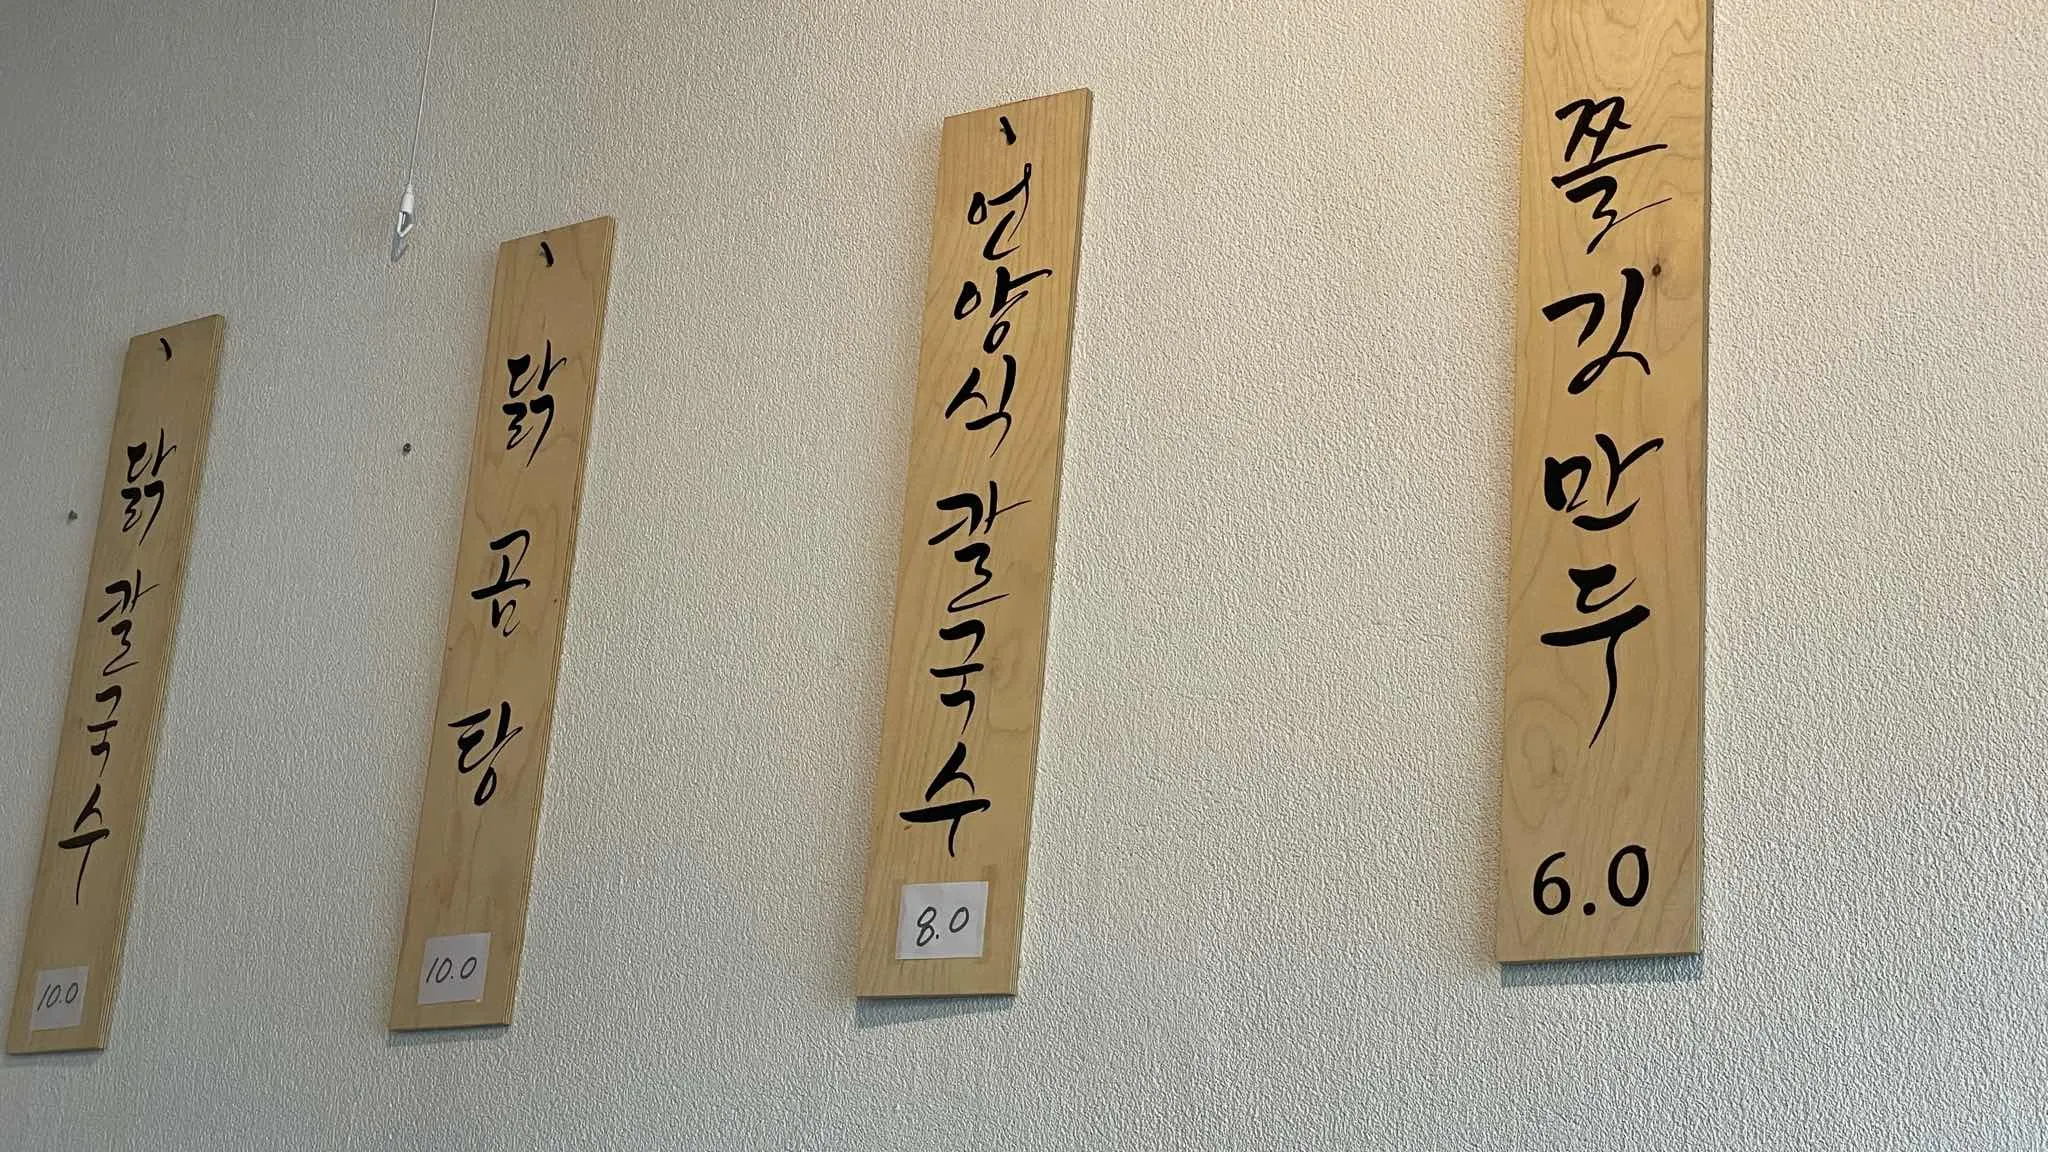 닭칼국수
10.0
닭곰탕
10.0
언양식칼국수
8.0
쫄깃만두
6.0